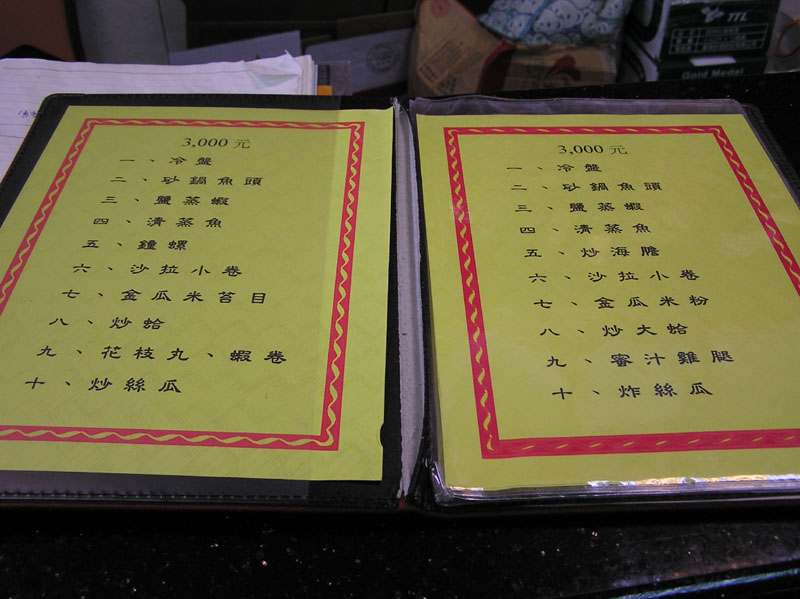 TTL
Gold Medal
3,000 元
一、冷盤
二、砂鍋魚頭
三、鹽蒸蝦
四、清蒸魚
五、鐘螺
六、沙拉小卷
七、金瓜米苔目
八、炒蛤
九、花枝丸、蝦卷
十、炒絲瓜
3,000 元
一、冷盤
二、砂鍋魚頭
三、鹽蒸蝦
四、清蒸魚
五、炒海膽
六、沙拉小卷
七、金瓜米粉
八、炒大蛤
九、蜜汁雞腿
十、炸絲瓜